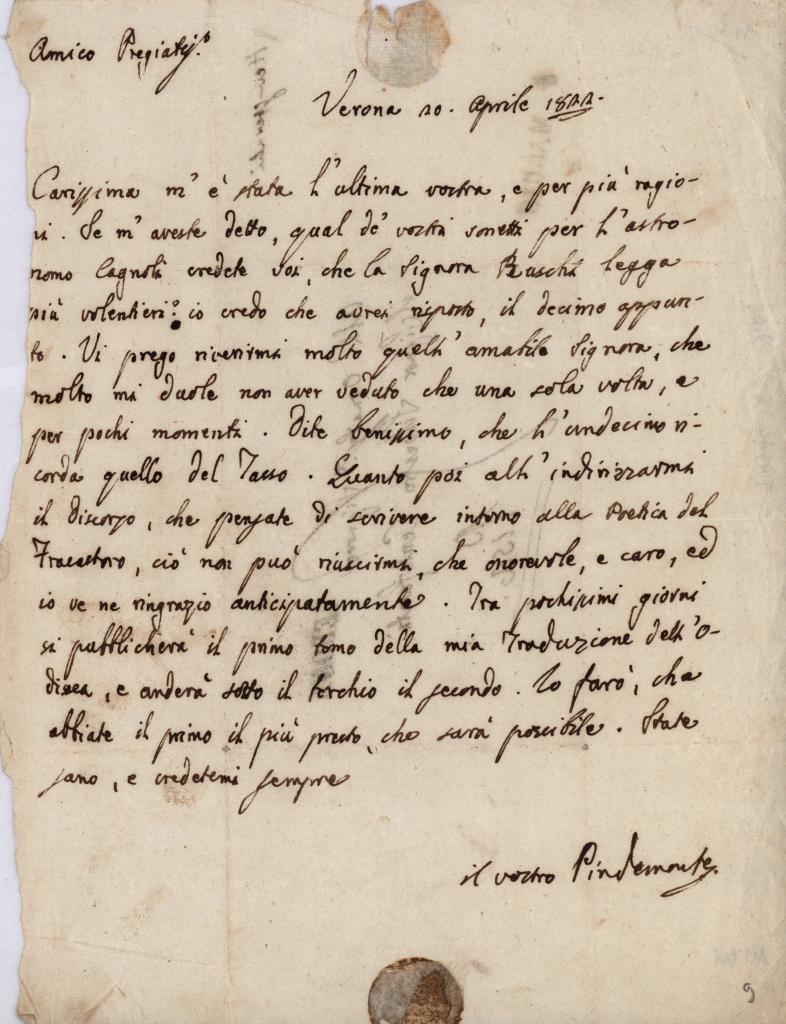 Amico Pregiatis.º
Verona 20. Aprile 1822.
Carissima m' è stata l'ultima vostra, e per più ragio-
ni. Se m' aveste detto, qual de' vostri sonetti per l'astro-
nomo Cagnoli credete voi, che la Signora Buschi legga
più volentieri: io credo che avrei risposto, il decimo appun-
to. Vi prego riverirmi molto quell' amabile Signora, che
molto mi duole non aver veduto che una sola volta, e
per pochi momenti. Dite benissimo, che l'undecimo ri-
corda quello del Tasso. Quanto poi all' indirizzarmi
il Discorso, che pensate di scrivere intorno alla Poetica del
Fracastoro, ciò non può riuscirmi, che onorevole, e caro, ed
io ve ne ringrazio anticipatamente. Tra pochissimi giorni
si pubblicherà il primo tomo della mia Traduzione dell'O-
dissea, e anderà sotto il torchio il secondo. Io farò, che
abbiate il primo il più presto, che sarà possibile. State
sano, e credetemi sempre
il vostro Pindemonte.
9